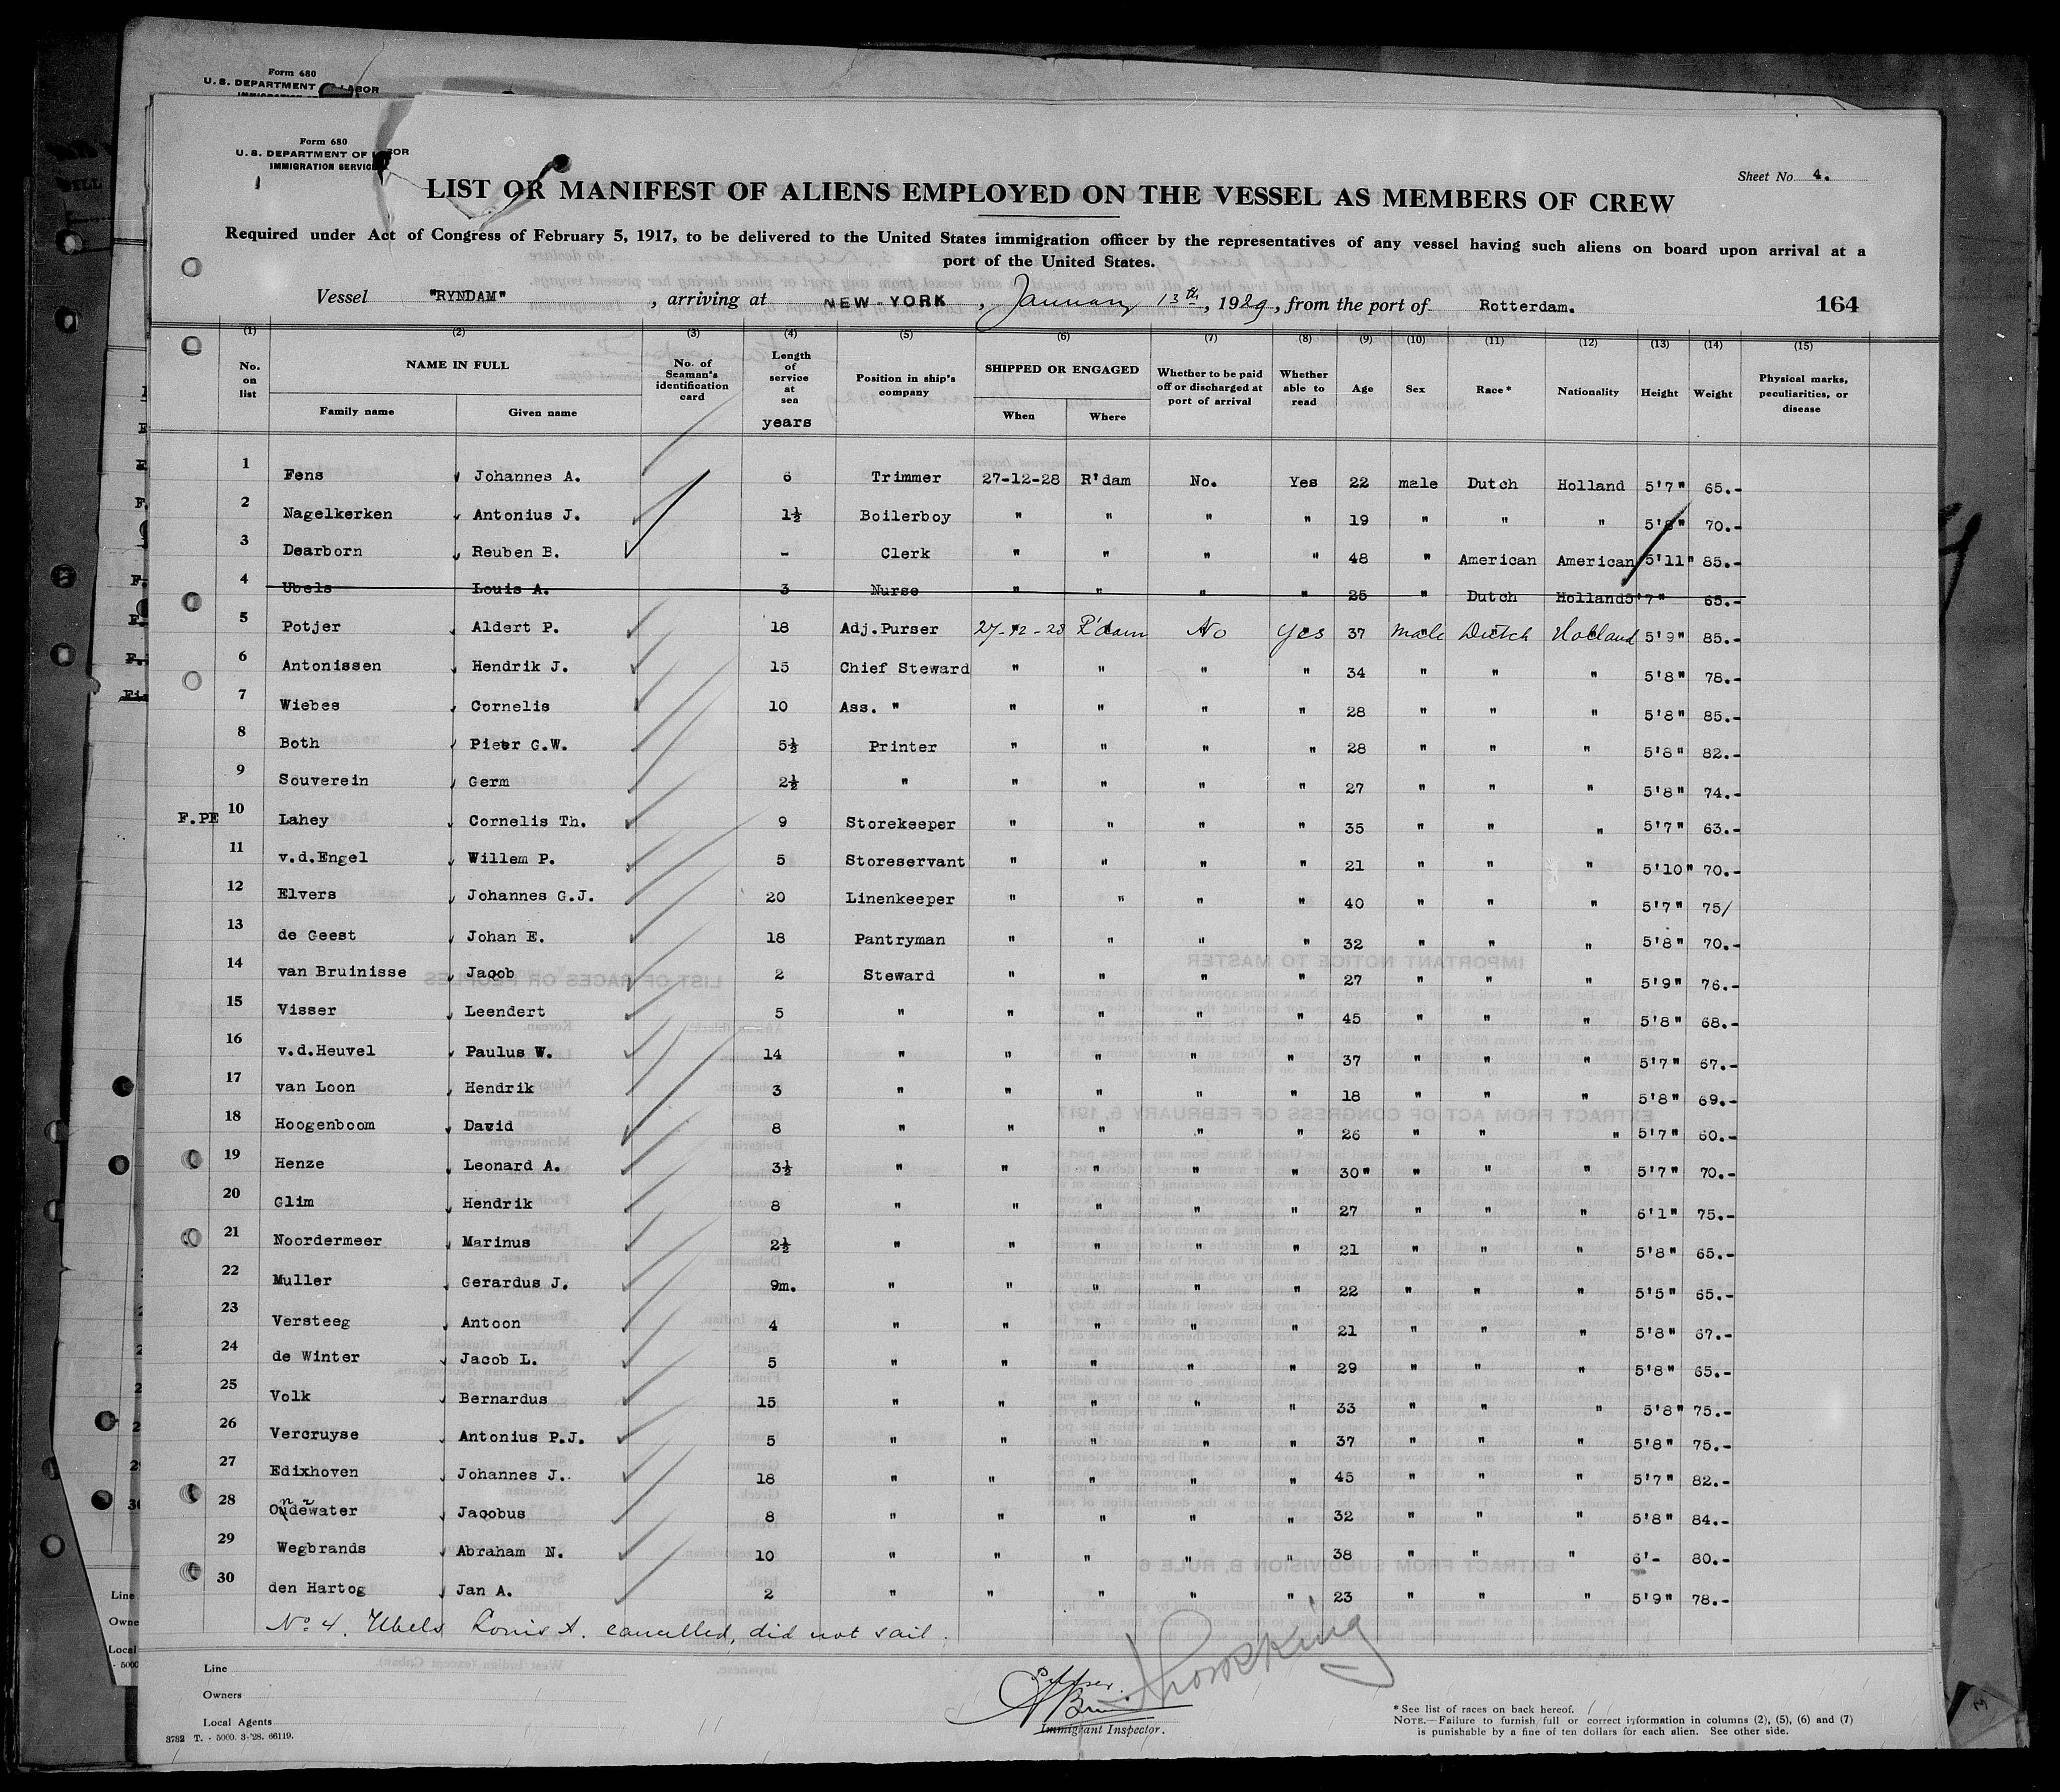 Form 680
U. S. DEPARTMENT LABOR
Form 680
U. S. DEPARTMENT OF LABOR
IMMIGRATION SERVICE
Sheet No. 4.
LIST OR MANIFEST OF ALIENS EMPLOYED ON THE VESSEL AS MEMBERS OF CREW
Required under Act of Congress of February 5, 1917, to be delivered to the United States immigration officer by the representatives of any vessel having such aliens on board upon arrival at a
port of the United States.
Vessel "RYNDAM", arriving at NEW-YORK, January 13th, 1929, from the port of Rotterdam. 164
(1) (2) (3) (4) (5) (6) (7) (8) (9) (10) (11) (12) (13) (14) (15)
No. on list NAME IN FULL Family name Given name No. of Seaman's identification card Length of service at sea years Position in ship's company SHIPPED OR ENGAGED When Where Whether to be paid off or discharged at port of arrival Whether able to read Age Sex Race* Nationality Height Weight Physical marks, peculiarities, or disease
1 Fens Johannes A. 6 Trimmer 27-12-28 R'dam No. Yes 22 male Dutch Holland 5'7" 65.-
2 Nagelkerken Antonius J. 1½ Boilerboy " " " " 19 " " " 5'8" 70.-
3 Dearborn Reuben B. - Clerk " " " " 48 " American American 5'11" 85.-
4 Ubels Louis A. 3 Nurse " " " " 25 " Dutch Holland 5'7" 65.-
5 Potjer Aldert P. 18 Adj.Purser 27-12-28 R'dam No Yes 37 male Dutch Holland 5'9" 85.-
6 Antonissen Hendrik J. 15 Chief Steward " " " " 34 " " " 5'8" 78.-
7 Wiebes Cornelis 10 Ass. " " " " " 28 " " " 5'8" 85.-
8 Both Pieter G.W. 5½ Printer " " " " 28 " " " 5'8" 82.-
9 Souverein Germ 2½ " " " " " 27 " " " 5'8" 74.-
F.PE 10 Lahey Cornelis Th. 9 Storekeeper " " " " 35 " " " 5'7" 63.-
11 v.d.Engel Willem P. 5 Storeservant " " " " 21 " " " 5'10" 70.-
12 Elvers Johannes G.J. 20 Linenkeeper " " " " 40 " " " 5'7" 75/
13 de Geest Johan E. 18 Pantryman " " " " 32 " " " 5'8" 70.-
14 van Bruinisse Jacob 2 Steward " " " " 27 " " " 5'9" 76.-
15 Visser Leendert 5 " " " " " 45 " " " 5'8" 68.-
16 v.d.Heuvel Paulus W. 14 " " " " " 37 " " " 5'7" 67.-
17 van Loon Hendrik 3 " " " " " 18 " " " 5'8" 69.-
18 Hoogenboom David 8 " " " " " 26 " " " 5'7" 60.-
19 Henze Leonard A. 3½ " " " " " 30" " " " 5'7" 70.-
20 Glim Hendrik 8 " " " " " 27 " " " 6'1" 75.-
21 Noordermeer Marinus 2½ " " " " " 21 " " " 5'8" 65.-
22 Muller Gerardus J. 9m. " " " " " 22 " " " 5'5" 65.-
23 Versteeg Antoon 4 " " " " " 21 " " " 5'8" 67.-
24 de Winter Jacob L. 5 " " " " " 29 " " " 5'8" 65.-
25 Volk Bernardus 15 " " " " " 33 " " " 5'8" 75.-
26 Vercruyse Antonius P.J. 5 " " " " " 37 " " " 5'8" 75.-
27 Edixhoven Johannes J. 18 " " " " " 45 " " " 5'7" 82.-
28 Oudewater Jacobus 8 " " " " " 32 " " " 5'8" 84.-
29 Wegbrands Abraham N. 10 " " " " " 38 " " " 6'- 80.-
30 den Hartog Jan A. 2 " " " " " 23 " " " 5'9" 78.-
No 4. Ubels Louis A. cancelled, did not sail.
Line
Owners
Local Agents
Immigrant Inspector.
3782 T. - 5000. 3-'28. 66119.
* See list of races on back hereof.
NOTE.—Failure to furnish full or correct information in columns (2), (5), (6) and (7)
is punishable by a fine of ten dollars for each alien. See other side.